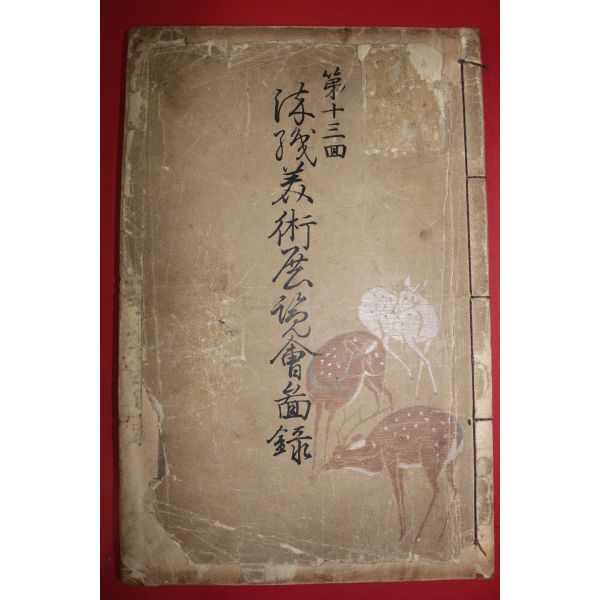 第十三回
染織美術展覧會圖録